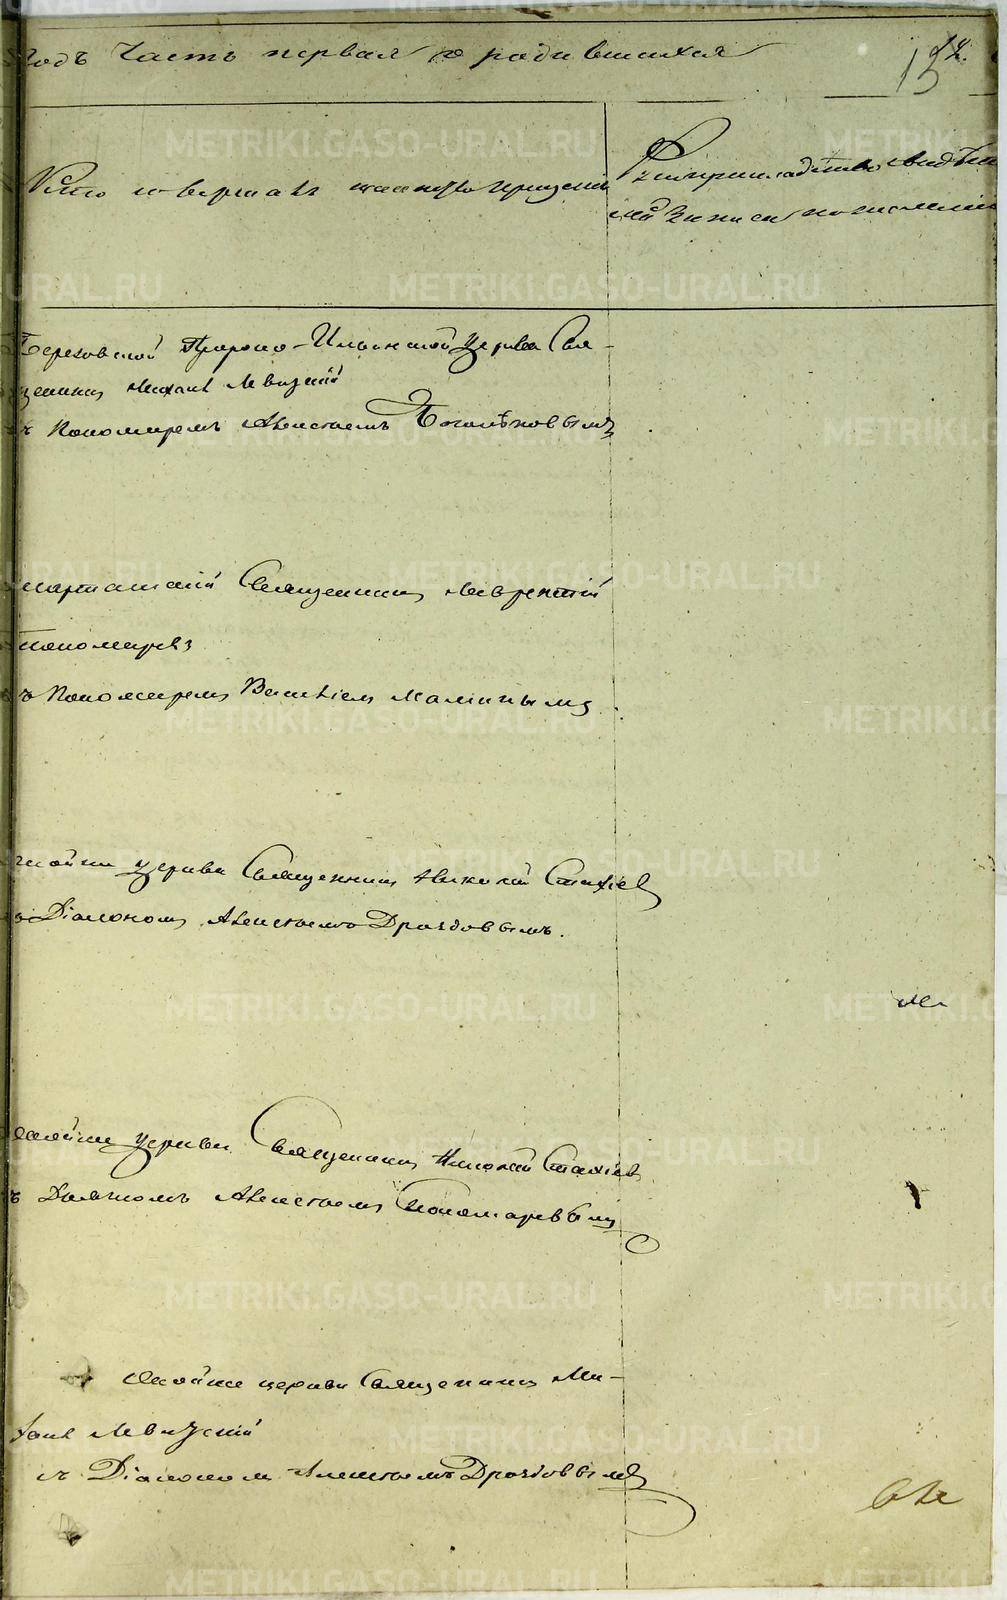 Годъ Часть первая о родившихся
12.
13
Кто совершалъ таинство крещенія
Рукоприкладство свидѣте
лей записи по желанію
Березовской Пророко-Ильинской церкви Свя-
щенникъ Михаилъ Левицкій
съ Пономаремъ Алексѣемъ Боголѣповымъ
Шарташскій Священникъ Лаврентій
Пономаревъ
съ Пономаремъ Василіемъ Малинымъ
тойже церкви Священникъ Николай Стахіев
съ Діакономъ Алексѣемъ Дроздовымъ.
тойже церкви Священникъ Николай Стахіевъ
съ Дьячкомъ Алексѣемъ Пономаревымъ
Тойже церкви Священникъ Ми-
хаилъ Левицкій
съ Діакономъ Алексѣемъ Дроздовымъ
METRIKI.GASO-URAL.RU